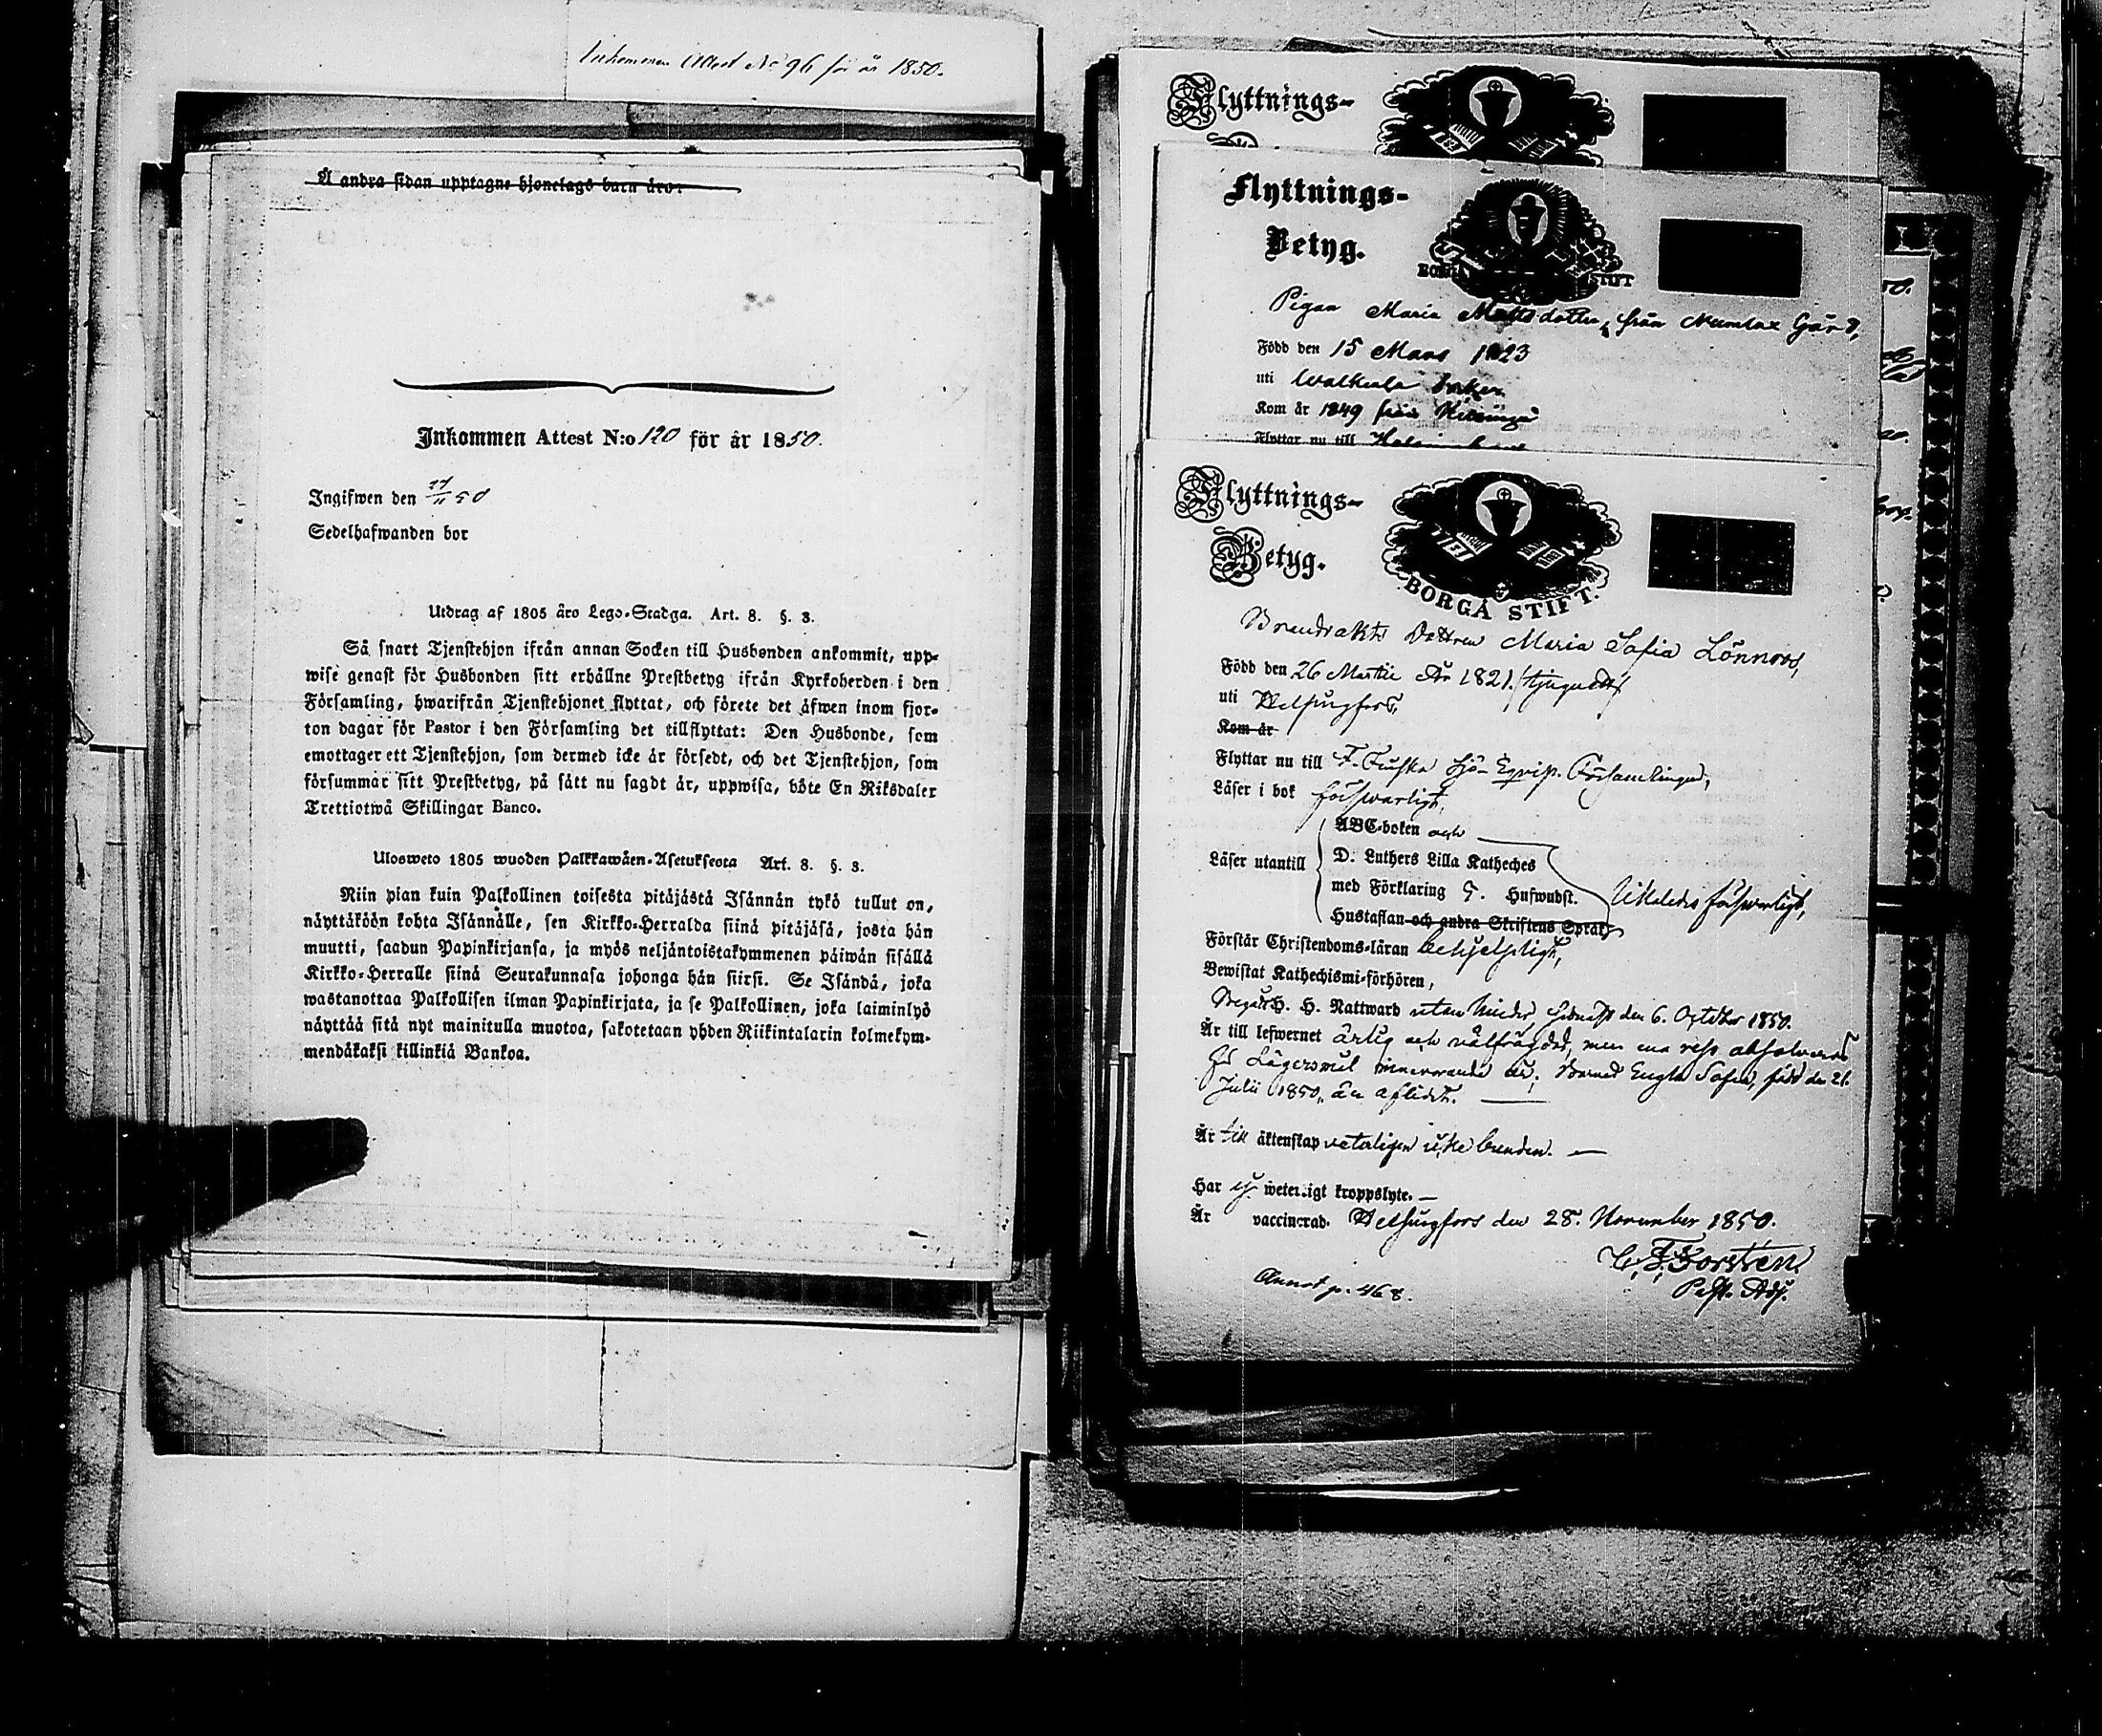 Inkommen Attest No 96 för år 1850.
Å andra sidan upptagne hjonelags barn äro:
Inkommen Attest N:o 120 för år 1850.
Ingifwen den 50
Sedelhafwanden bor
Utdrag af 1805 års Lego-Stadga. Art. 8. §. 3.
Så snart Tjenstehjon ifrån annan Socken till Husbonden ankommit, upp-
wise genast för Husbonden sitt erhållne Prestbetyg ifrån Kyrkoherden i den
Församling, hwarifrån Tjenstehjonet flyttat, och förete det äfwen inom fjor-
ton dagar för Pastor i den Församling det tillflyttat: Den Husbonde, som
emottager ett Tjenstehjon, som dermed icke är försedt, och det Tjenstehjon, som
försummar sitt Prestbetyg, på sätt nu sagdt är, uppwisa, böte En Riksdaler
Trettiotwå Skillingar Banco.
Ulosweto 1805 wuoden Palkkawäen-Asetuksesta Art. 8. §. 3.
Niin pian kuin Palkollinen toisesta pitäjästä Isännän tykö tullut on,
näyttäköön kohta Isännälle, sen Kirkko-Herralda siinä pitäjäsä, josta hän
muutti, saadun Papinkirjansa, ja myös neljäntoistakymmenen päiwän sisällä
Kirkko-Herralle siinä Seurakunnasa johonga hän siirsi. Se Isändä, joka
wastanottaa Palkollisen ilman Papinkirjata, ja se Palkollinen, joka laiminlyö
näyttää sitä nyt mainitulla muotoa, sakotetaan yhden Riikintalarin kolmekym-
mendäkaksi killinkiä Bankoa.
Flyttnings-
Flyttnings-
Betyg.
BORGÅ STIFT
Pigan Maria Mattsdotter, från Numlax Gård,
Född den 15 Mars 1823
uti Walkeala Socken
Kom år 1849 från
Flyttar nu till
Flyttnings-
Betyg.
BORGÅ STIFT.
Brandvakts Dottren Maria Sofia Lönnroos,
Född den 26 Martii År 1821.
uti Helsingfors,
Kom år
Flyttar nu till Sjö-Eqvip. Församlingen,
Läser i bok försvarligt,
Läser utantill
ABC-boken och
D. Luthers Lilla Katheches
med Förklaring 5. Hufwudst.
Hustaflan och andra Skriftens Språk
likaledes försvarligt,
Förstår Christendoms-läran behjelpligt,
Bewistat Kathechismi-förhören,
Begått H. H. Nattward utan hinder, sednast den 6. October 1850.
Är till lefwernet ärlig och välfrägdad, men en resa absolverad
för Lägersmål; Barnet Engla Sofia, född den 21.
Julii 1850, är aflidet.
Är till äktenskap veterligen icke bunden.
Har ej weterligt kroppslyte.
Är vaccinerad. Helsingfors den 28. November 1850.
C. F. Forstén
Past. Adj.
Annot. p. 468.